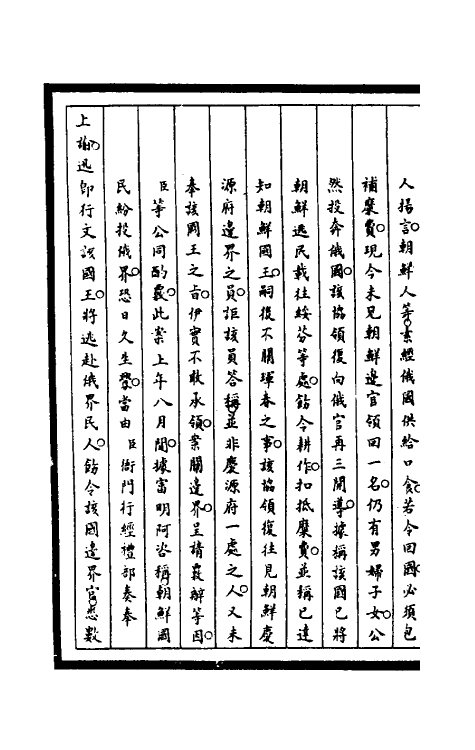 人揚言朝鮮人等素經俄國供給口食若令回國必須包
補糜費現今未見朝鮮邊官領回一名仍有男婦子女公
然投奔俄國該協領復向俄官再三開導據稱該國已將
朝鮮逃民載往綏芬等處飭令耕作扣抵糜費並稱已達
知朝鮮國王嗣後不關琿春之事該協領復往見朝鮮慶
源府邊界之員詎該員答稱並非慶源府一處之人又未
奉該國王之旨伊實不敢承領業關邊界呈請覈辦等因
臣等公同酌覈此案上年八月間據富明阿咨稱朝鮮國
民紛投俄界恐日久生釁當由臣衙門行經禮部奏奉
上諭迅即行文該國王將逃赴俄界民人飭令該國邊界官悉數